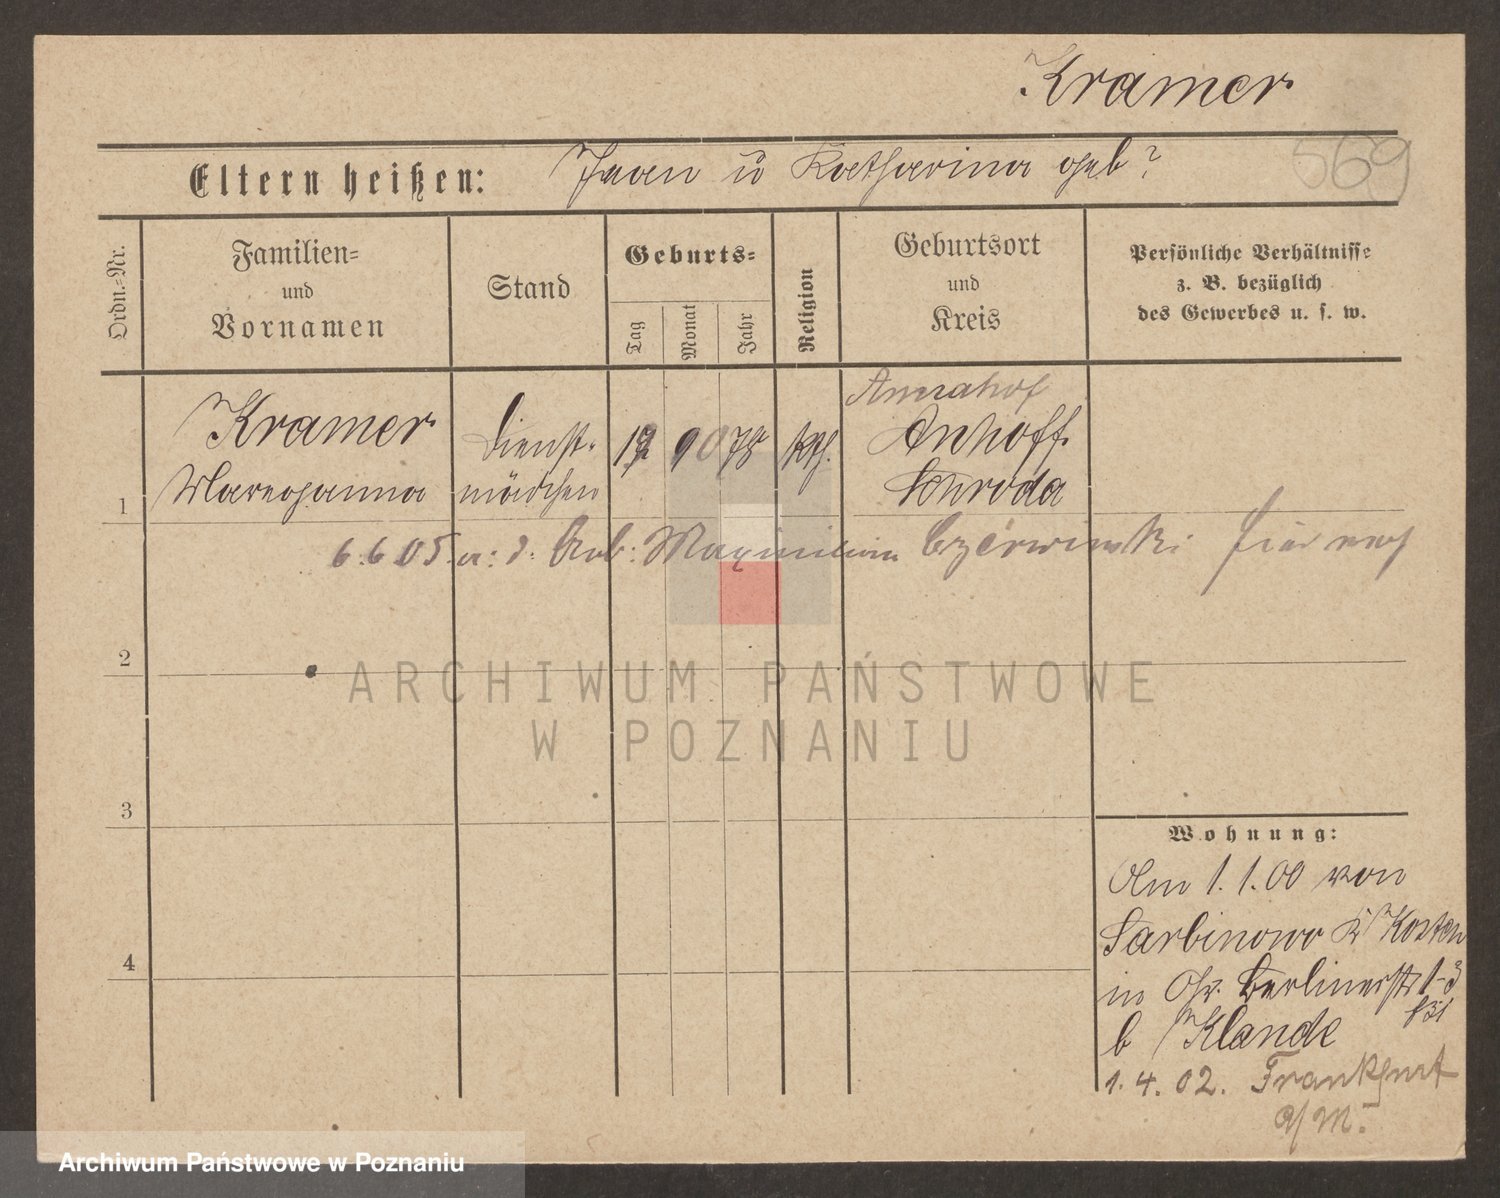 Kramer
569
Eltern heißen: Jvan ü Katharina geb?
Ordn.-Nr.
Familien-
und
Vornamen
Stand
Geburts-
Tag
Monat
Jahr
Religion
Geburtsort
und
Kreis
Persönliche Verhältnisse
z. B. bezüglich
des Gewerbes u. s. w.
Annahof
Kramer Dienst- 78 kth. Anhoff
1 Maryanna mädchen Schroda
6.6.05 a: d. Arb: Maximilian Czérwinski
2
ARCHIWUM PAŃSTWOWE
W POZNANIU
3
Wohnung:
Am 1.1.00 von
Sarbinowo K Kosten
in Chr. Berlinerstr 1-3
b Klande
1.4.02. Frankfurt
a/M.
4
Archiwum Państwowe w Poznaniu